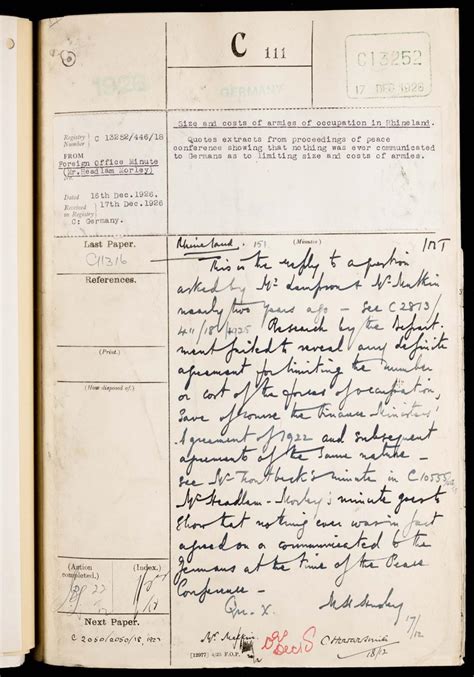 C 111
C13252
17 DEC 1926
1926
GERMANY
Registry Number } C 13252/446/18
FROM
Foreign Office Minute
(Mr. Headlam Morley)
Dated 16th Dec. 1926.
Received in Registry } 17th Dec. 1926
C: Germany.
Size and costs of armies of occupation in Rhineland.
Quotes extracts from proceedings of peace
conference showing that nothing was ever communicated
to Germans as to limiting size and costs of armies.
Last Paper.
C11316
References.
(Print.)
(How disposed of.)
(Action completed.)
(Index.)
Next Paper.
C 2050/2050/18, 1927
Rhineland. 151 (Minutes)
This is the reply to a question
asked by Mr Lampson & Mr
nearly two years ago – see C 2813/
/18/1925 Research by the Depart-
ment failed to reveal any definite
agreement for limiting the number
or cost of the forces of occupation,
save of course the Finance Ministers'
Agreement of 1922 and subsequent
agreements of the same nature –
see Mr minute in C10555
Mr Headlam-Morley's minute goes to
show that nothing ever was in fact
agreed on or communicated to the
Germans at the time of the Peace
Conference –
Qu. X.
17/12
18/12
[12977] 4/25 F.O.P.